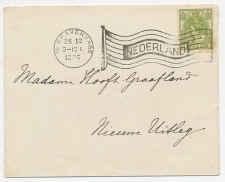 'S GRAVENHAGE
26 12
NEDERLAND
Madame Hooft Graafland
Nieuwe Uitleg